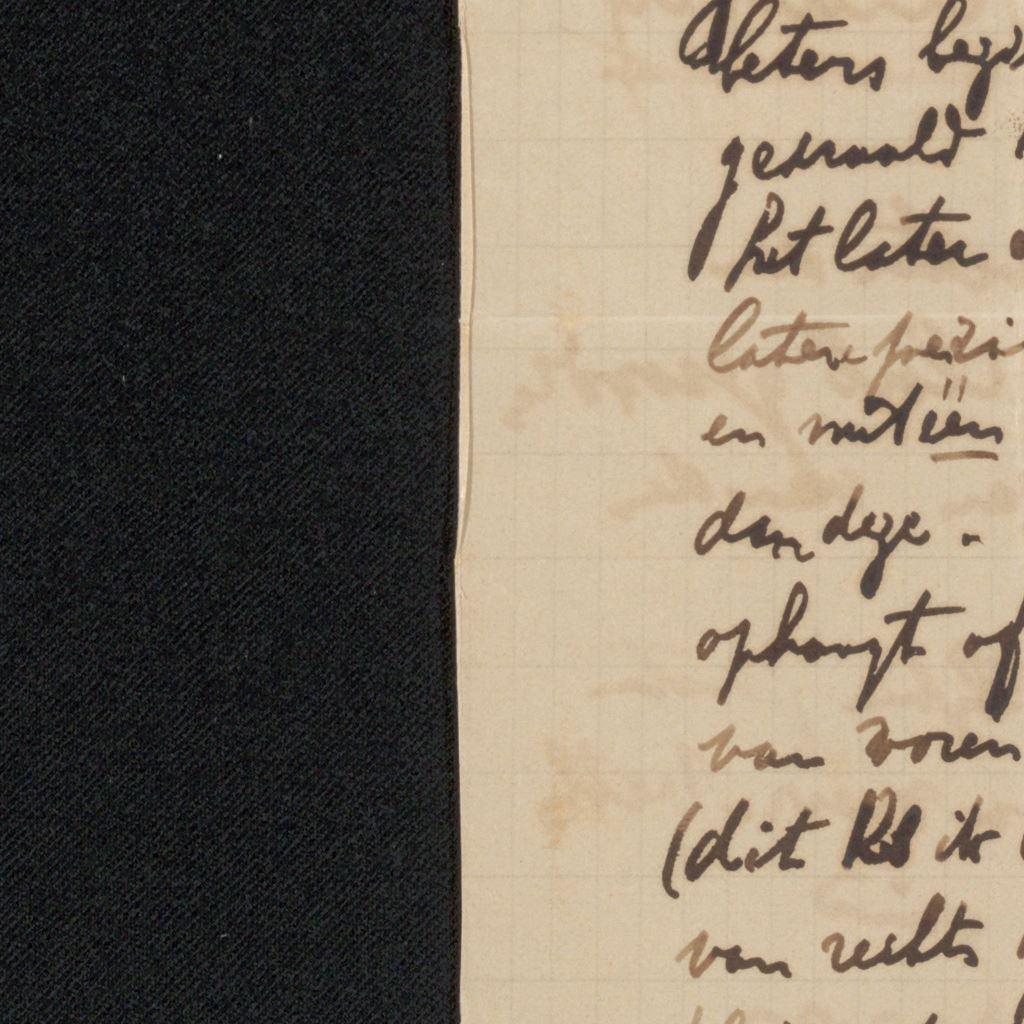 beters begi
gedraald
het later
latere peri
en met één
dan deze.
ophangt of
van voren
(dit ik
van rechts